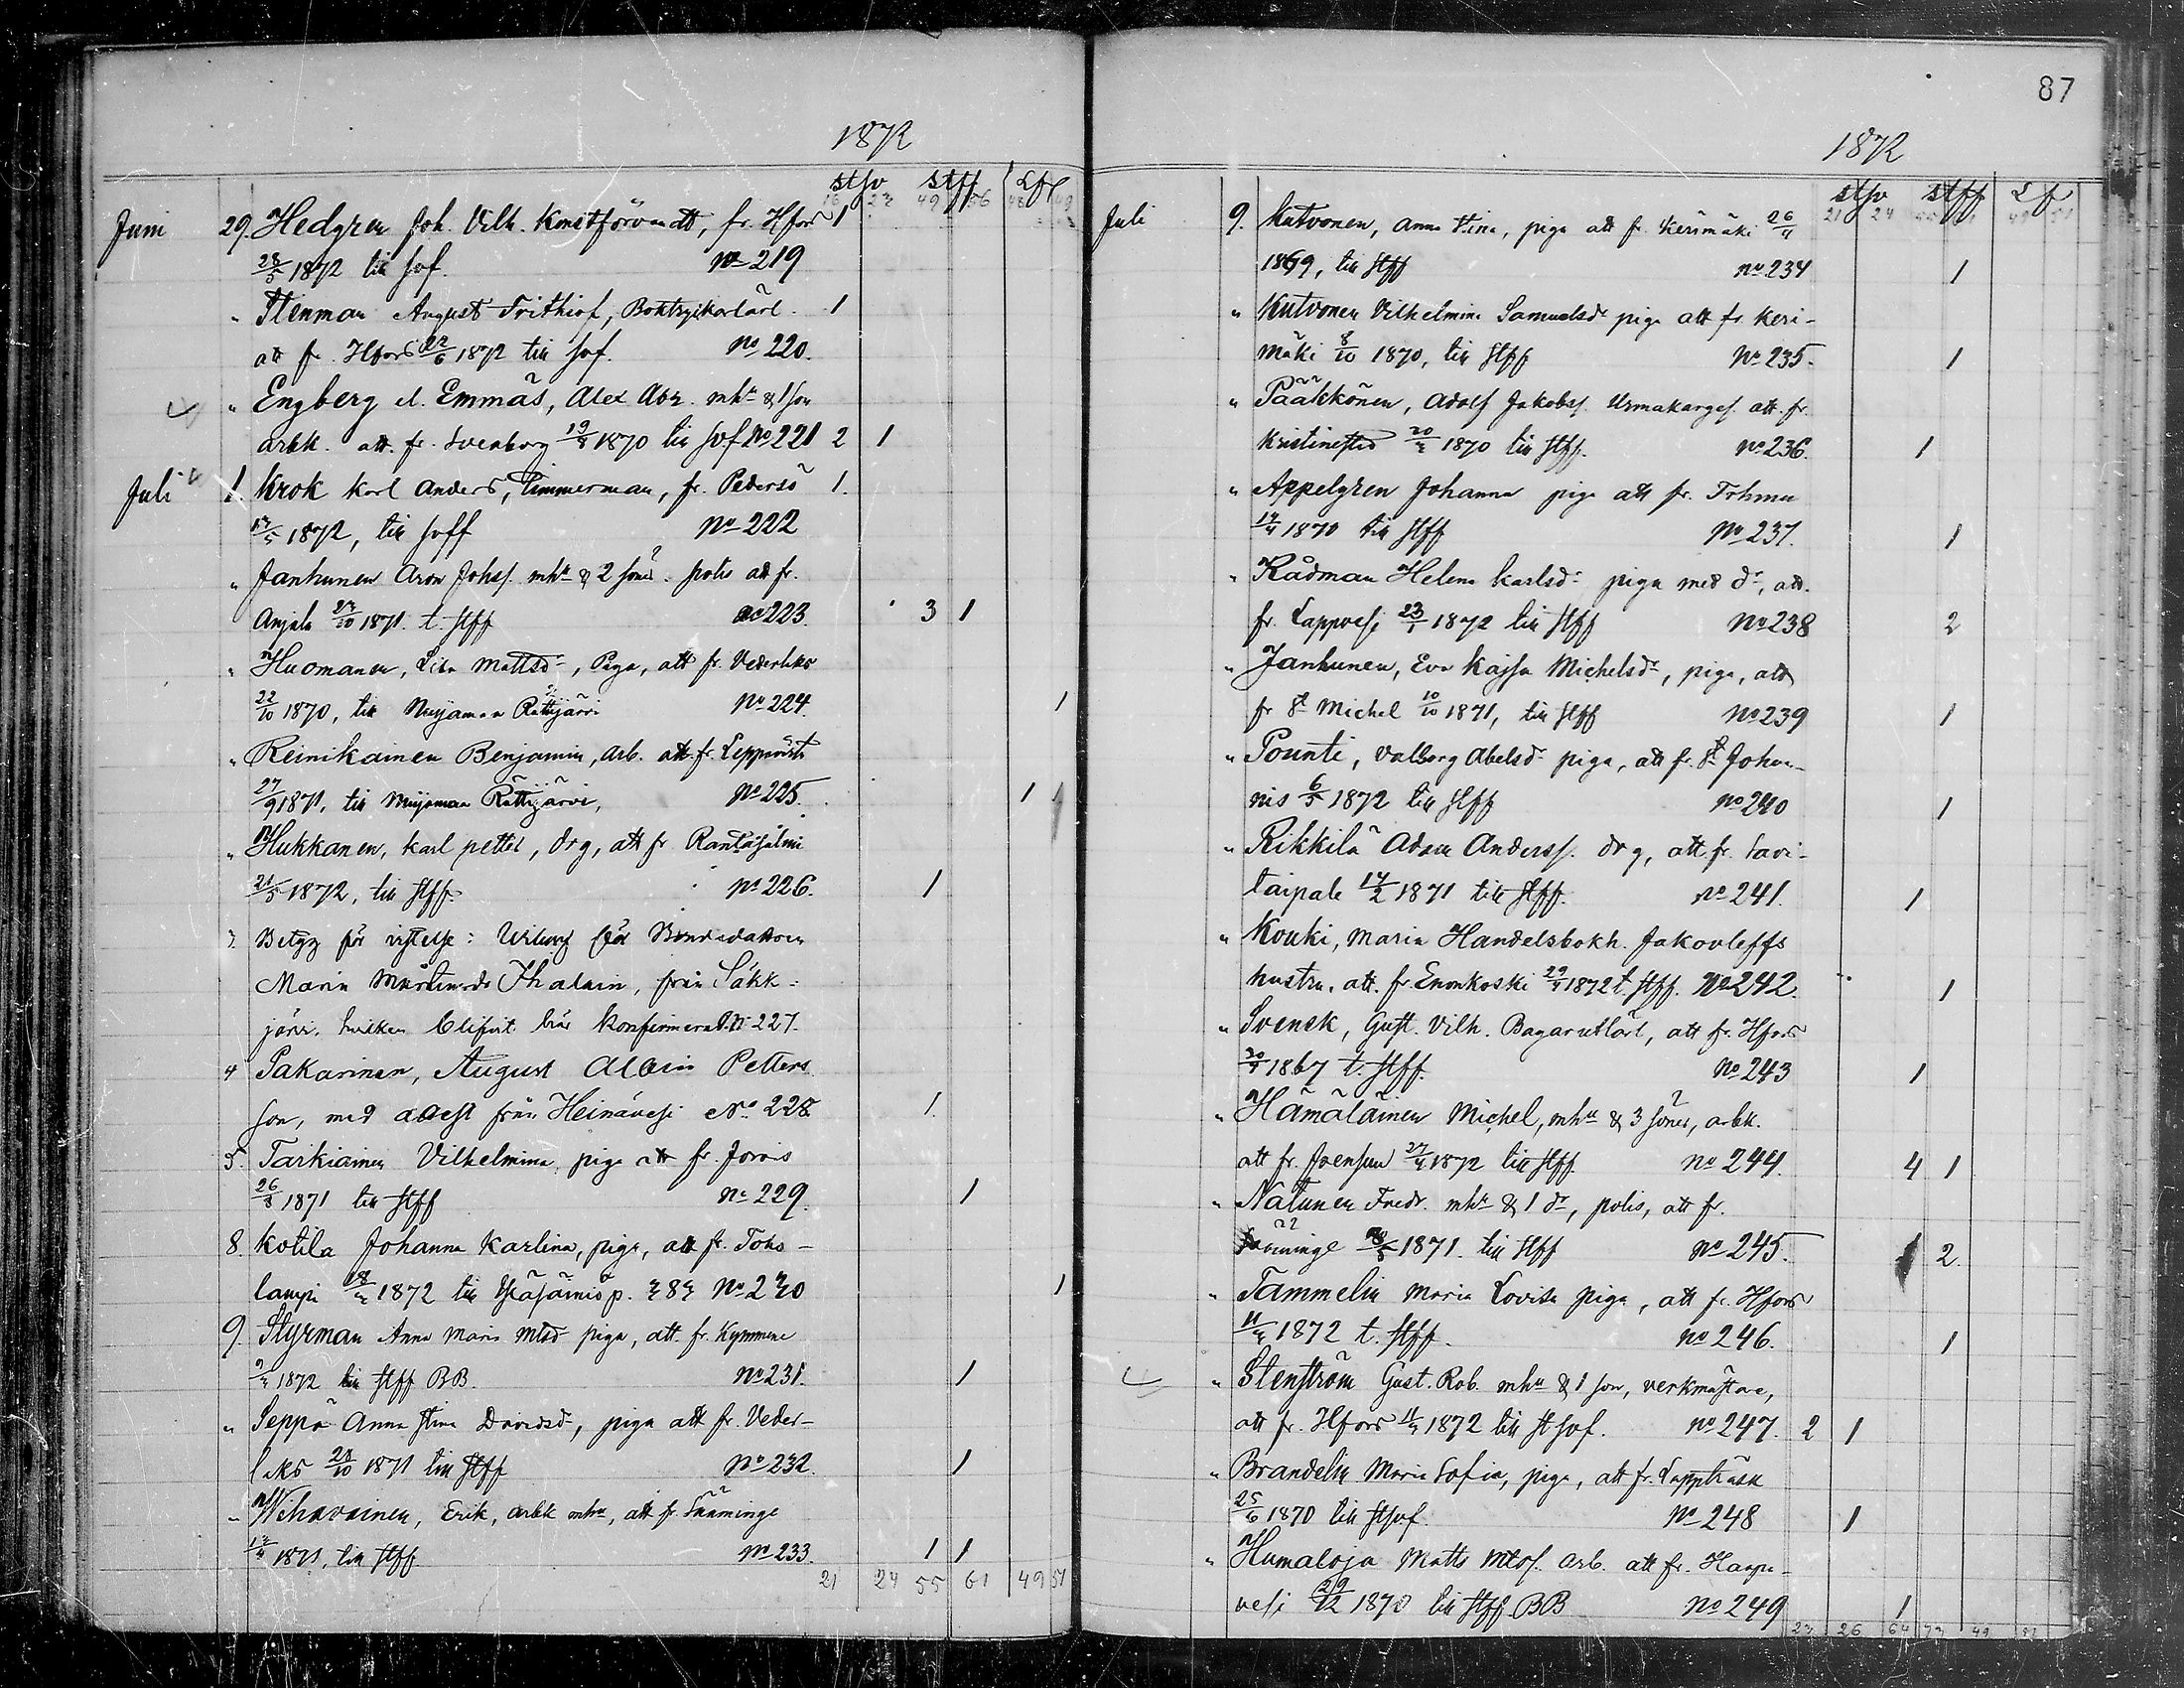 1872
stsv stff Lfs
16 23 49 56 48 49
Juni 29. Hedgren Joh. Vilh. Konstförvandt, fr. Hfors 1
28/5 1872 till svf. no 219
" Stenman August Frithiof, Boktryckarlärl. 1
att fr. Hfors 22/6 1872 till svf. No 220.
" Engberg el. Emmäs, Alex Abr. mhu & 1 son
arbk. att. fr. Sveaborg 19/9 1870 till svf No 221 2 1
Juli 1. Krok Karl Anders, Timmerman, fr. Pedersö 1.
/5 1872, till svff No 222
" Janhunen Aron Johss. mhu & 2 söner. polis att fr.
Anjala 27/10 1871. t. stff no 223. 3 1
" Huomanen, Lisa Mattsdr, Piga, att fr. Vederlaks
22/10 1870, till Nuijamaa Rättijärvi No 224. 1
" Reinikainen Benjamin, arb. att. fr. Leppävirta
27/9 1871, till Nuijamaa Rättijärvi, No 225. 1
" Hukkanen, Karl petter, drg, att fr Rantasalmi
21/5 1872, till stff. No 226. 1
3. Betyg för vistelse: för Bondedottren
Maria Mårtensdr Thalain, från Säkk-
järvi. hvilken blifvit här konfirmerad. N 227.
4 Pakarinen, August Albin Petters
son, med attest från Heinävesi No 228 1.
5. Tarkiainen Vilhelmina, piga att fr. Jorois
26/8 1871 till stff no 229. 1
8. Kotila Johanna Karlina, piga, att fr. Toho-
lampi 1872 till p. No 230 1
9. Styrman Anna Maria Mtsd piga, att. fr. Kymmene
1872 till stff BB. No 231. 1
" Seppä Anna Stina Davidsd, piga att fr. Veder-
laks 28/10 1871 till stff No 232. 1
" Wihavainen, Erik, arbk mhu, att fr. Sääminge
1871, till stff. No 233. 1 1
21 24 55 61 49 51
87
1872
stsv stff Lf
21 24 55 61 49 51
Juli 9. Kutvonen, Anna Stina, piga att fr Kerimäki 26/11
1869, till stff no 234 1
" Kutvonen Vilhelmina Samuelsdr piga att fr Keri-
mäki 8/10 1870, till stff No 235. 1
" Pääkkönen, Adolf Jakobss. Urmakarges. att. fr.
Kristinestad 1870 till stff. no 236. 1
" Appelgren Johanna piga att fr. Frhmn
14/4 1870 till stff No 237. 1
" Rådman Helena Karlsdr piga med dr, att.
fr. Lappvesi 23/1 1872 till stff No 238 2
" Janhunen, Eva Kajsa Michelsdr, piga, att
fr St Michel 10/10 1871, till stff No 239 1
" Pounti, Valborg Abelsdr piga, att fr. St Johan-
nis 6/5 1872 till stff no 240 1
" Rikkilä Adam Anderss. drg, att. fr. Savi-
taipale 14/2 1871 till stff. No 241. 1
" Kouki, Maria Handelsbokh. Jakovleffs
hustru. att. fr Enonkoski 29/4 1872 t. stff. No 242. 1
" Svensk, Gust. Vilh. Bagarelärl, att fr. Hfors
1867 t. stff. No 243 1
" Hämäläinen Michel, mhu & 3 söner, arbk.
att fr. Joensuu 27/4 1872 till stff. no 244. 4 1
" Natunen Fredr. mhu & 1 dr, polis, att fr.
Sääminge 1871. till stff no 245. 2.
" Tammelin Maria Lovisa piga, att fr. Hfors
1872 t. stff. no 246. 1
" Stenström Gust. Rob. mhu & 1 son, verkmästare,
att fr. Hfors 1872 till st svf. No 247. 2 1
" Brandelin Maria Sofia, piga, att fr. Lappträsk
25/6 1870 till stsvf. No 248 1
" Humaloja Matts Mtss. arb. att fr. Haapa-
vesi 29/12 1870 till stff BB No 249 1
23 26 64 73 49 51